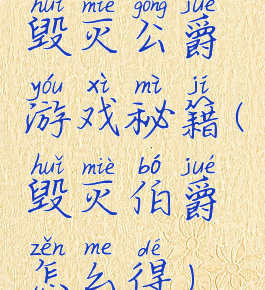 huǐ miè gōng jué
毁灭公爵
yóu xì mì jí
游戏秘籍(
huǐ miè bó jué
毁灭伯爵
zěn me dé
怎么得)